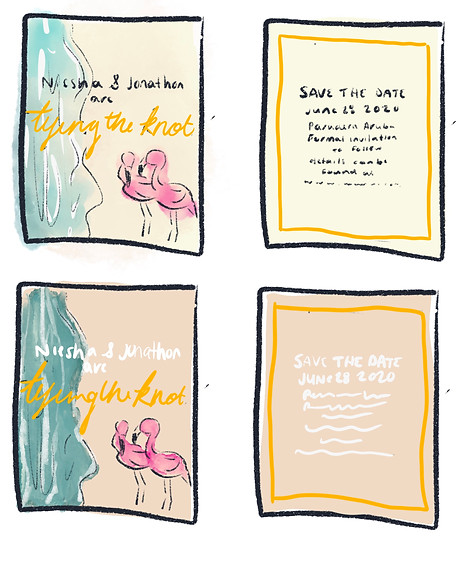 Niesha & Jonathon
are
tying the knot
SAVE THE DATE
JUNE 28 2020
Aruba
Formal invitation
to follow
details can be
found at
Niesha & Jonathon
are
tying the knot
SAVE THE DATE
JUNE 28 2020